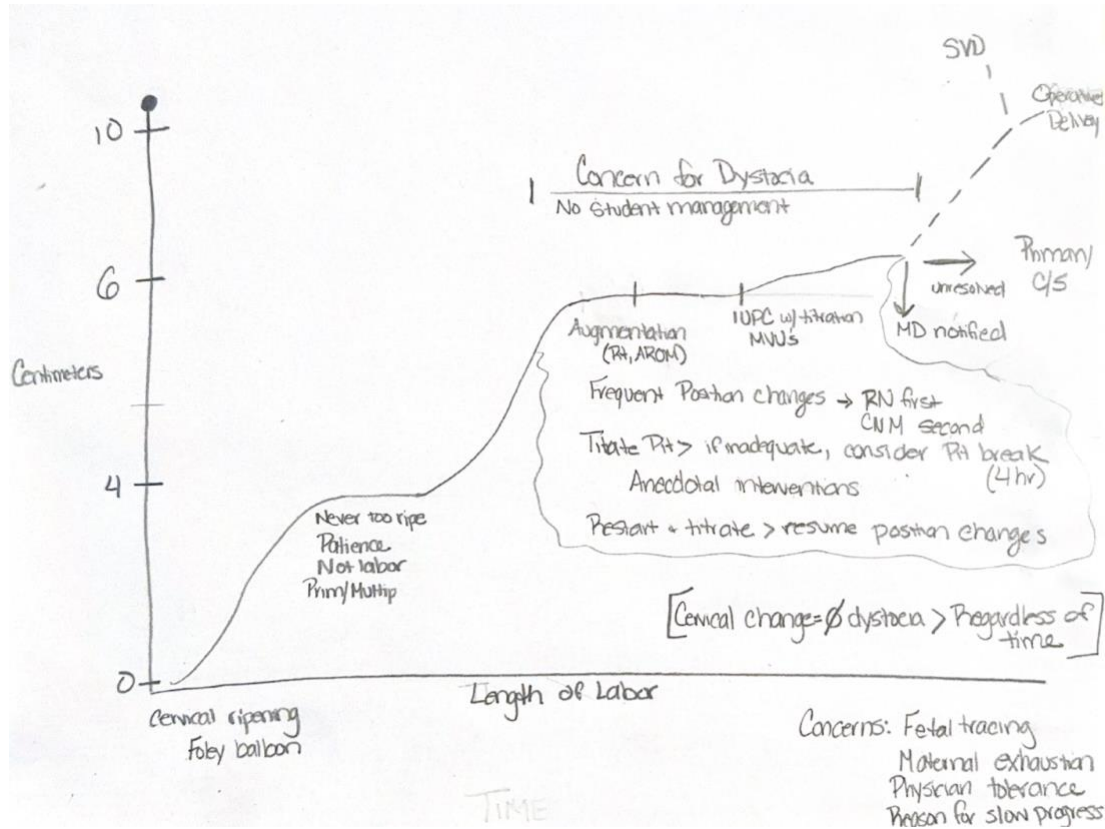 SVD
Operative
Delivery
10
Concern for Dystocia
No student management
6
Primary
C/S
unresolved
MD notified
Augmentation
(Pit, AROM)
IUPC w/ titration
MVUs
Centimeters
Frequent Position changes → RN first
CNM second
Titrate Pit > if inadequate, consider Pit break
(4hr)
Anecdotal interventions
Restart + titrate > resume position changes
4
Never too ripe
Patience
Not labor
Prim/Multip
[Cervical change=Ø dystocia > Regardless of
time]
0
Length of Labor
Cervical ripening
Foley balloon
Concerns: Fetal tracing
Maternal exhaustion
Physician tolerance
Reason for slow progress
TIME